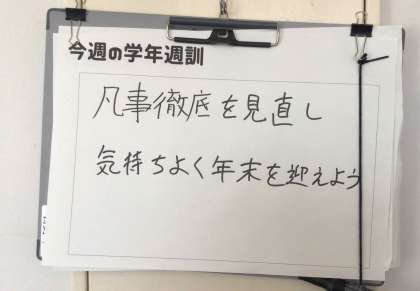 今週の学年週訓
凡事徹底を見直し
気持ちよく年末を迎えよう